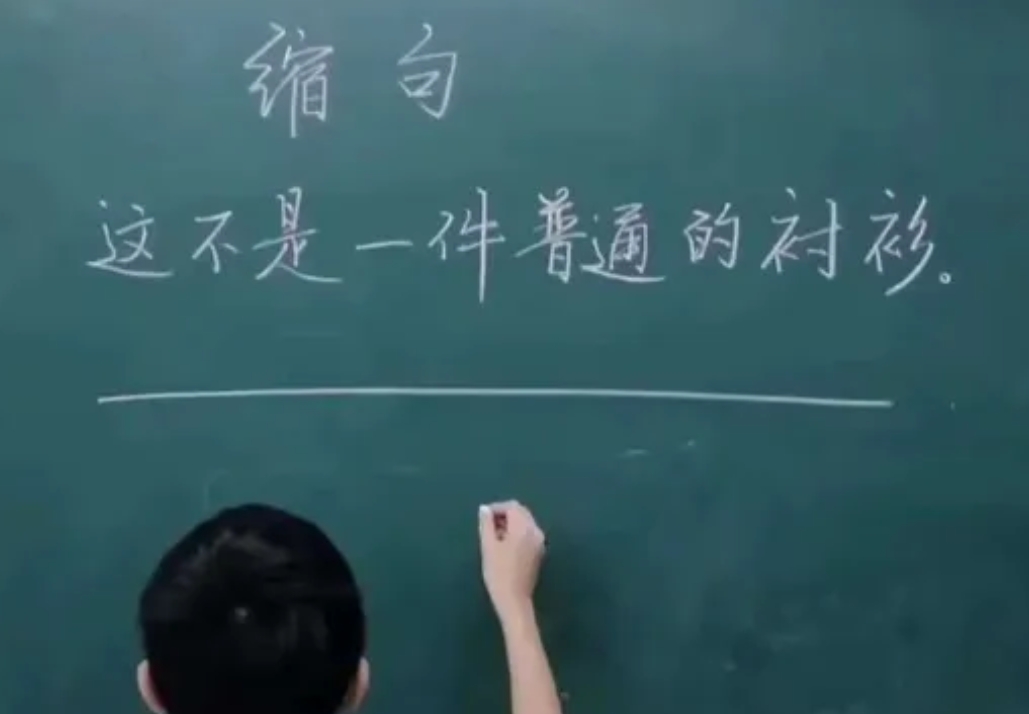 缩句
这不是一件普通的衬衫。